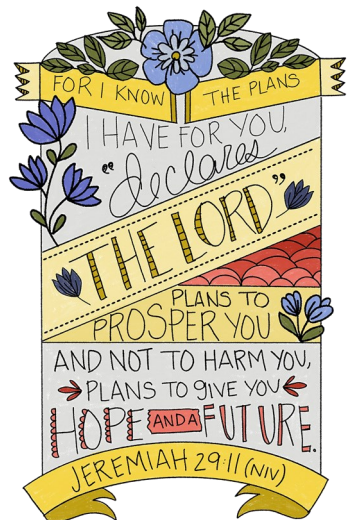 FOR I KNOW THE PLANS
I HAVE FOR YOU,
"declares
THE LORD"
PLANS TO
PROSPER YOU
AND NOT TO HARM YOU,
PLANS TO gIVE YOU
HOPE AND A FUTURE.
JEREMIAH 29:11 (NIV)